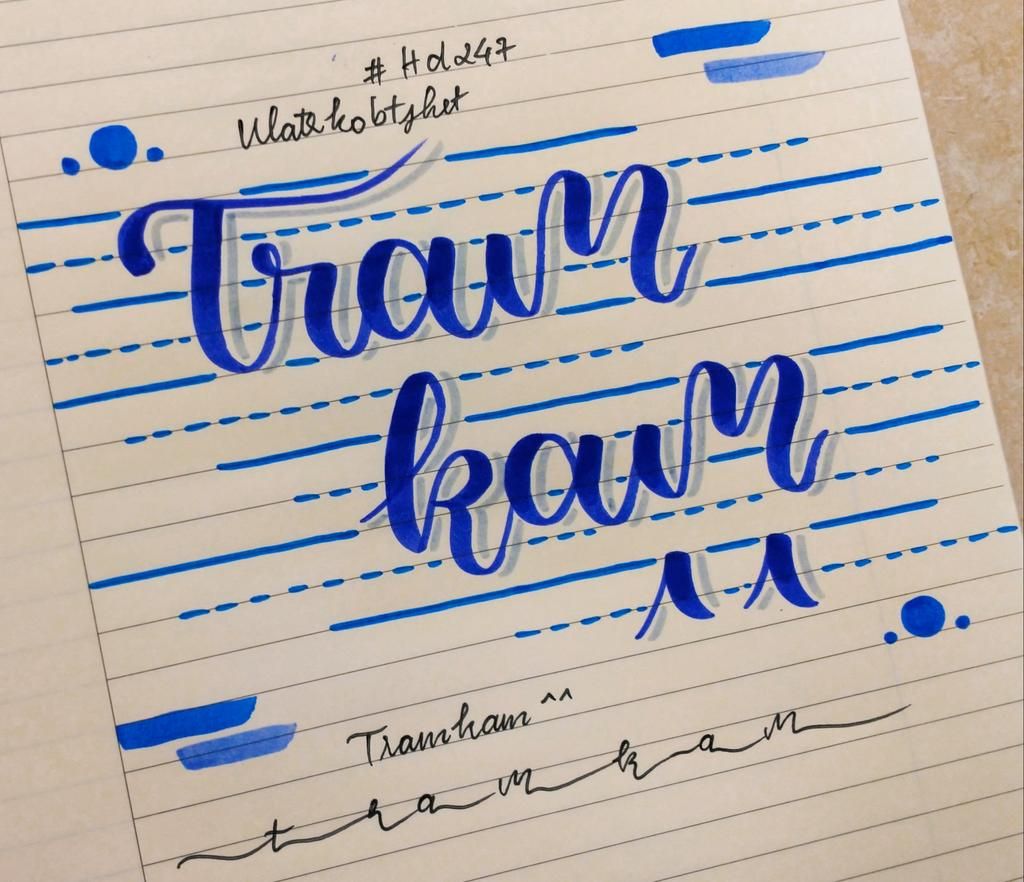 # Hd247
Tram
kam
^^
Tramkam ^^
tramkam